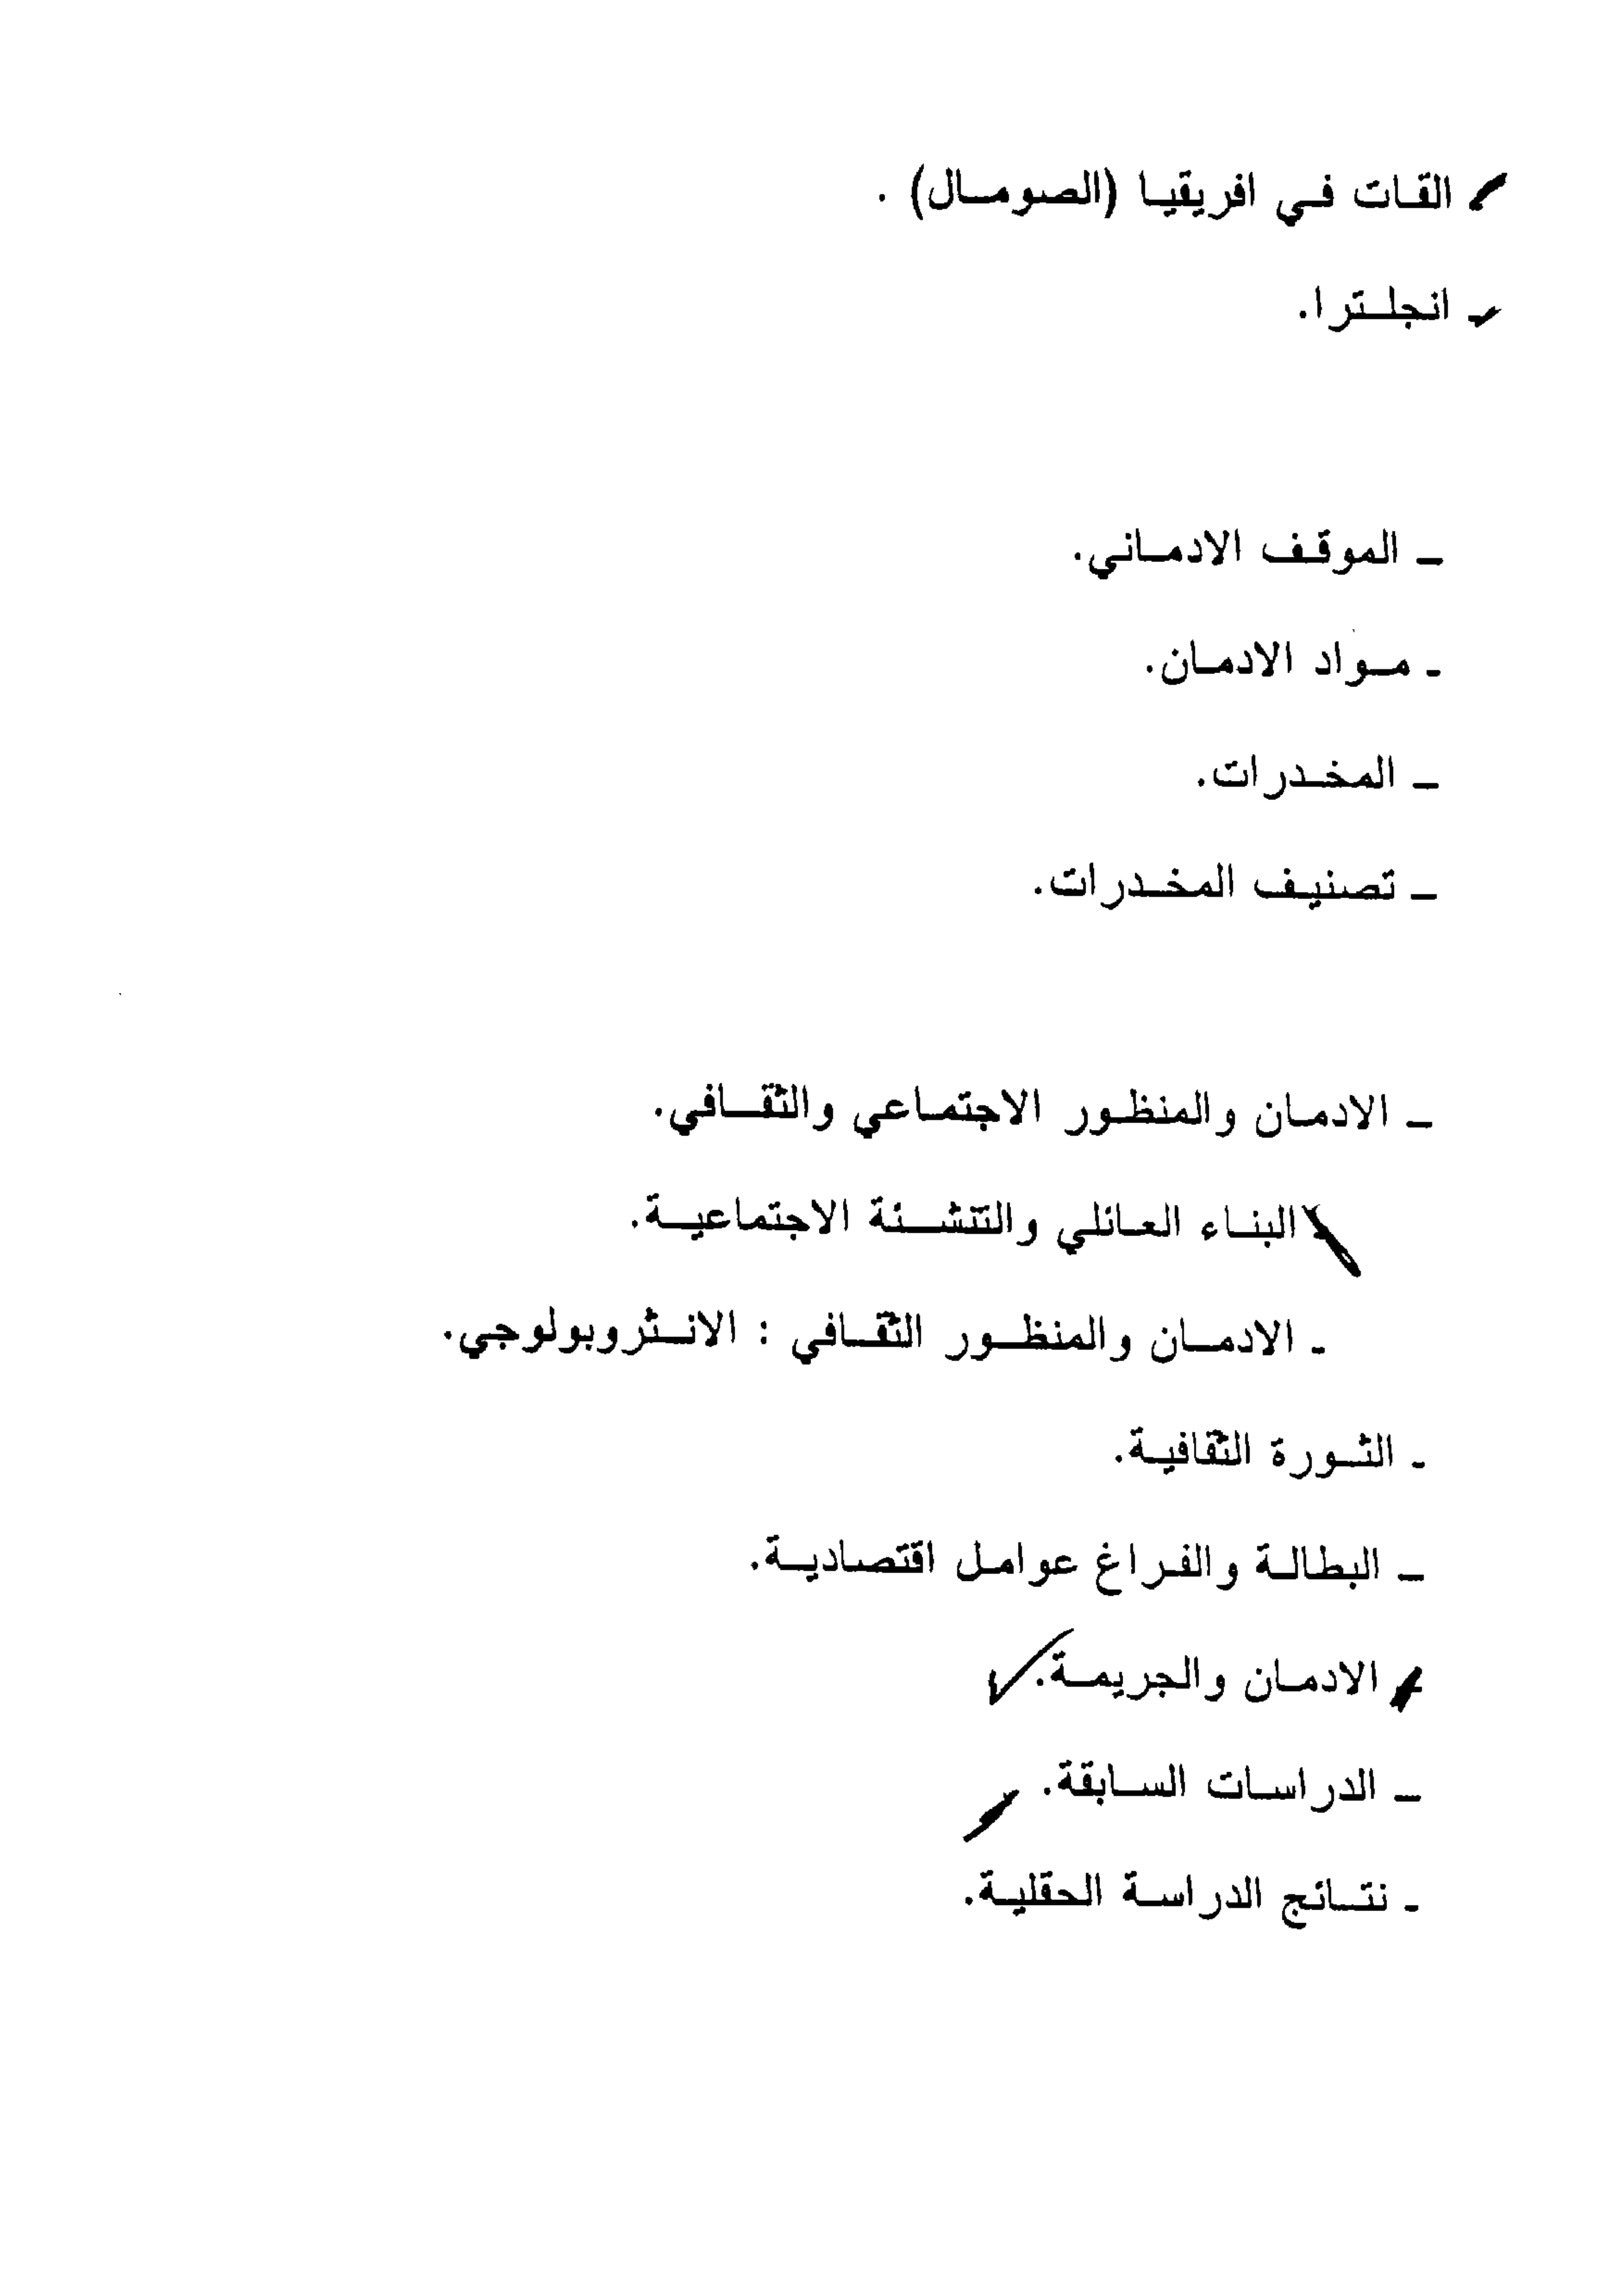 - القات في افريقيا (الصومال) .
- انجلترا.
- الموقف الادماني.
- مواد الادمان.
- المخدرات.
- تصنيف المخدرات.
- الادمان والمنظور الاجتماعي والثقافي.
- البناء العائلي والتنشئة الاجتماعية.
- الادمان والمنظور الثقافي : الانثروبولوجي.
- الثورة الثقافية.
- البطالة والفراغ عوامل اقتصادية.
- الادمان والجريمة.
- الدراسات السابقة.
- نتائج الدراسة الحقلية.